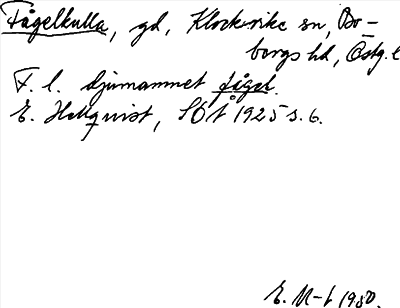 Fågelkulla, gd, Klockrike sn, Bo-
bergs hd, Östg. l
F. l. djurnamnet fågel.
E. Hellquist, SOÅ 1925 s. 6.
E. M-t 1980.